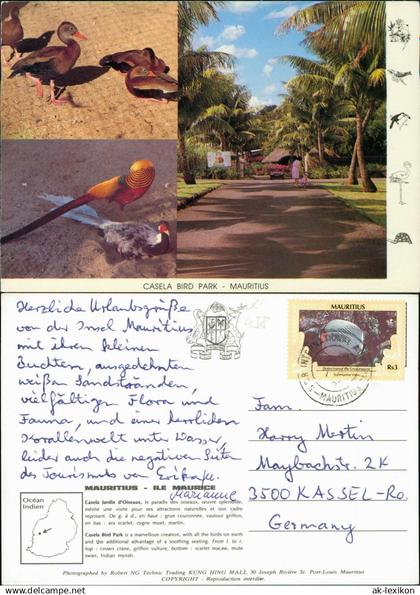 CASELA BIRD PARK - MAURITIUS
Herzliche Urlaubsgrüße
von der Insel Mauritius
mit ihren kleinen
Buchten, ausgedehnten
weißen Sandstränden,
vielfältigen Flora und
Fauna, und einer herrlichen
Korallenwelt unter Wasser,
leider auch die negativen Seiten
des Tourismus von
Marianne
MAURITIUS
Rs3
MAURITIUS
Fam.
Harry Martin
Maybachstr. 2K
3500 KASSEL-Ro.
Germany
MAURITIUS - ILE MAURICE
Océan
Indien
Casela Jardin d'Oiseaux, le paradis des oiseaux, œuvre splendide,
mérite une visite pour ses attractions naturelles et son cadre
reposant. De g. à d., en haut : grue couronnée, vautour griffon,
en bas : ara scarlet, cygne muet, martin.
Casela Bird Park is a marvellous creation, with all the birds on earth
and the additional advantage of a soothing setting. From l. to r.
top : crown crane, griffon vulture, bottom : scarlet macaw, mute
swan, Indian mynah.
Photographed by Robert NG Technic Trading KUNG HING MALL 30 Joseph Rivière St. Port-Louis Mauritius
COPYRIGHT - Reproduction interdite.
© www.ak-lexikon.de
ak-lexikon